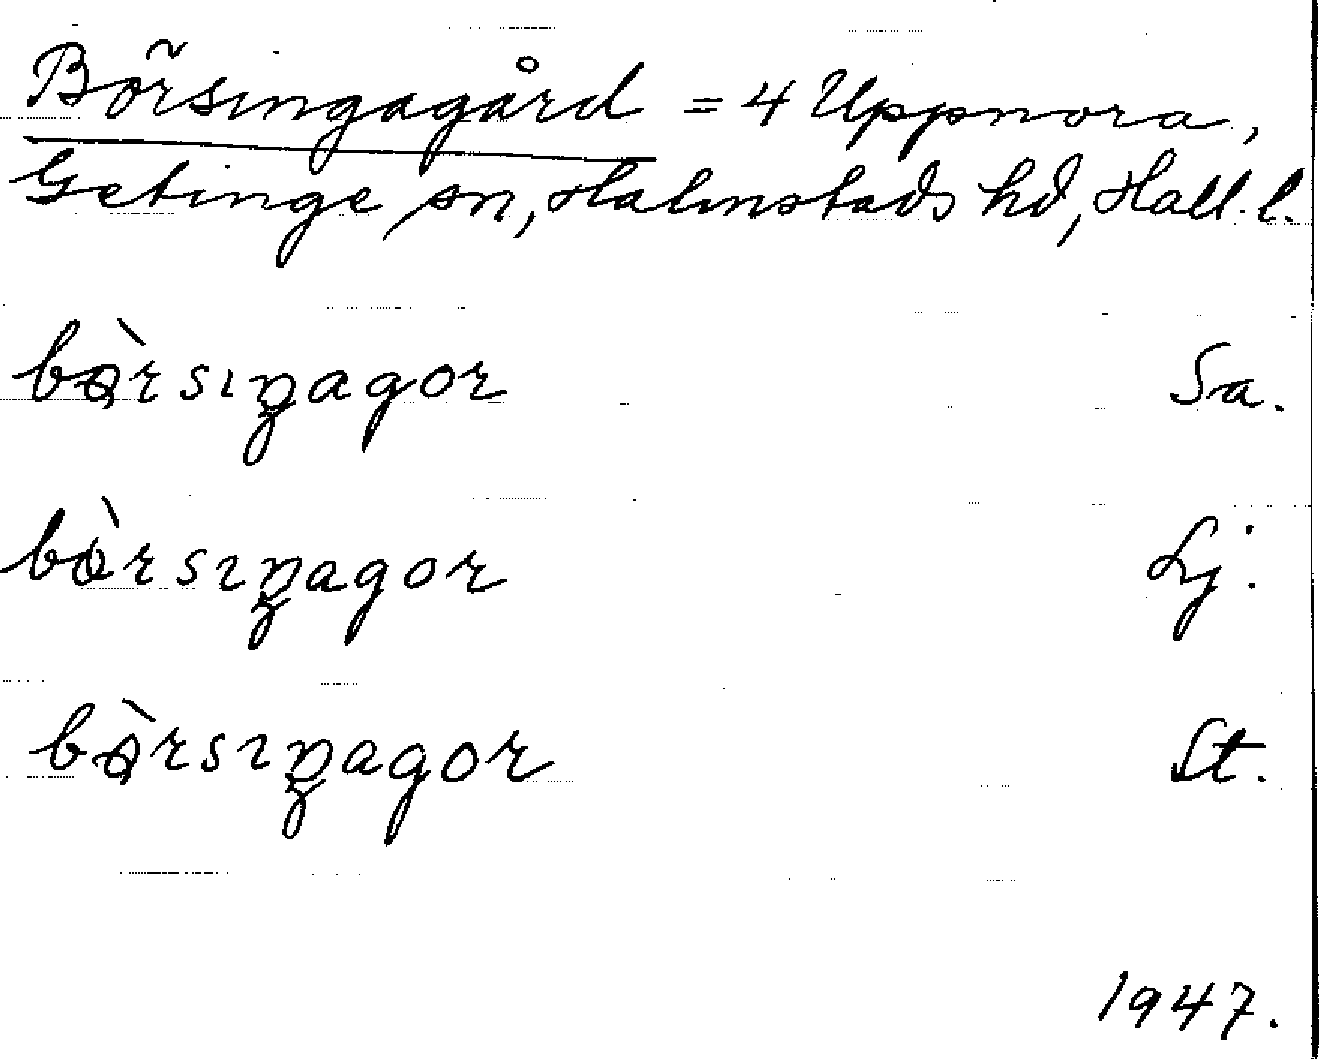 Börsingagård = 4 Uppnora,
Getinge sn, Halmstads hd, Hall. l.
bö̀rsıŋagor Sa.
bö̀rsıŋagor Lj.
bö̀rsıŋagor St.
1947.